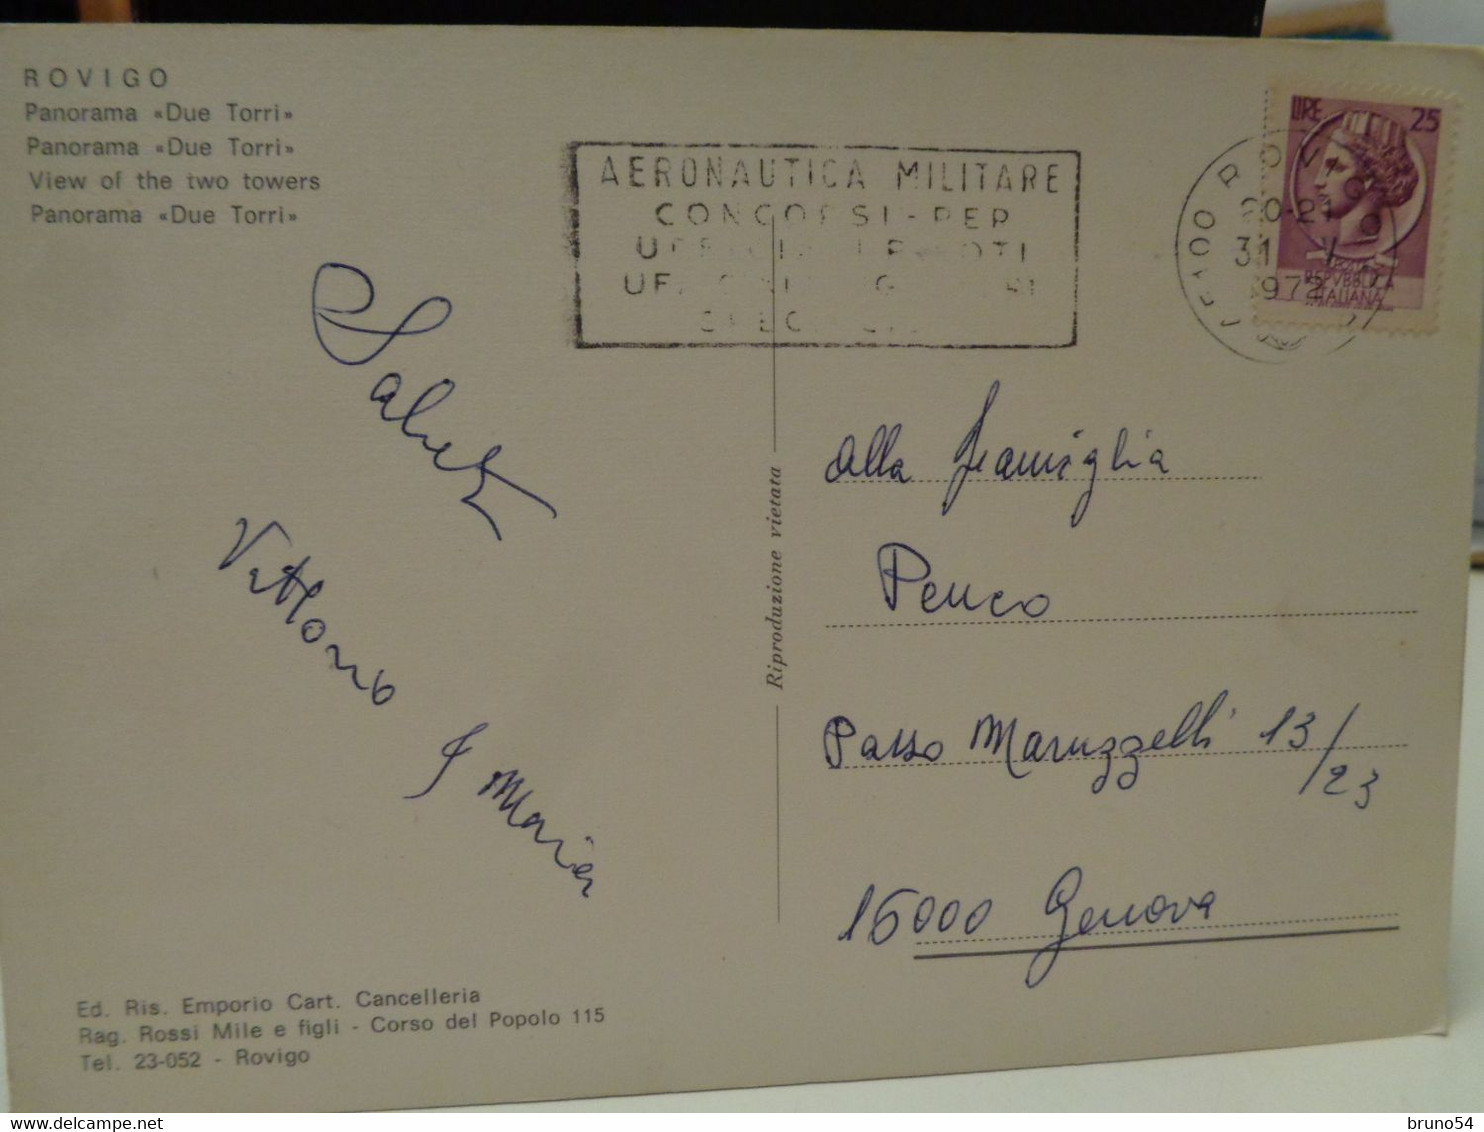 ROVIGO
Panorama «Due Torri»
Panorama «Due Torri»
View of the two towers
Panorama «Due Torri»
AERONAUTICA MILITARE
CONCORSI - PER
LIRE 25
REPVBBLICA
ITALIANA
20-21
31 V
1972
Saluti
Vittorio
Maria
Riproduzione vietata
Alla Famiglia
Penco
Passo Maruzzelli 13/
23
16000 Genova
Ed. Ris. Emporio Cart. Cancelleria
Rag. Rossi Mile e figli - Corso del Popolo 115
Tel. 23-052 - Rovigo
bruno54
delcampe.net